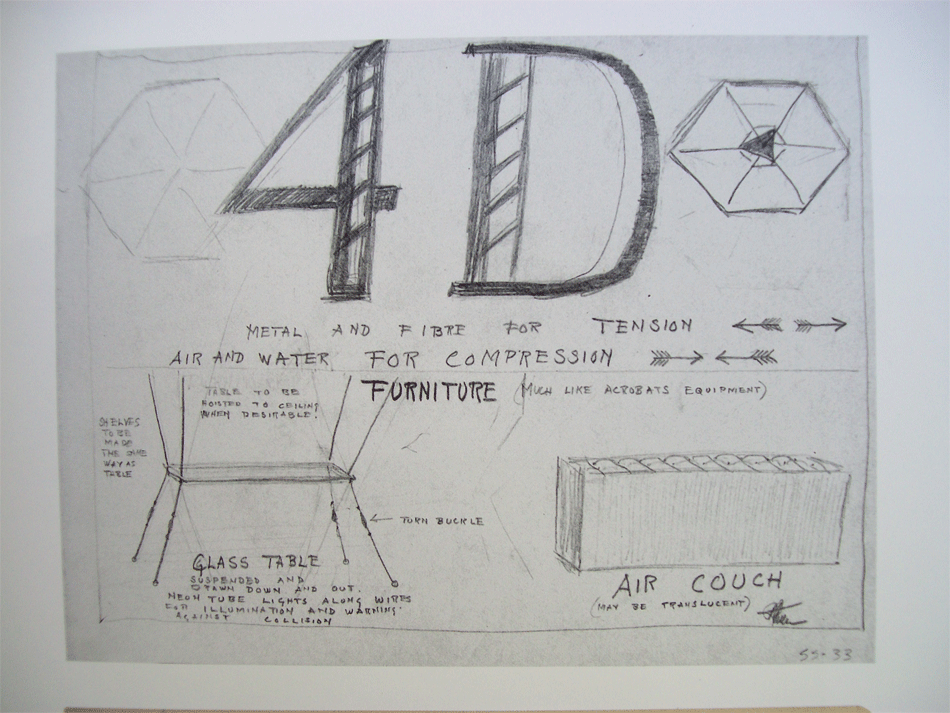 4D
METAL AND FIBRE FOR TENSION
AIR AND WATER FOR COMPRESSION
FURNITURE (MUCH LIKE ACROBATS EQUIPMENT)
TABLE TO BE
HOISTED TO CEILING
WHEN DESIRABLE.
SHELVES
TO BE
MADE
THE SAME
WAY AS
TABLE
TURN BUCKLE
GLASS TABLE
SUSPENDED AND
DRAWN DOWN AND OUT.
NEON TUBE LIGHTS ALONG WIRES
FOR ILLUMINATION AND WARNING
AGAINST COLLISION
AIR COUCH
(MAY BE TRANSLUCENT)
SS-33